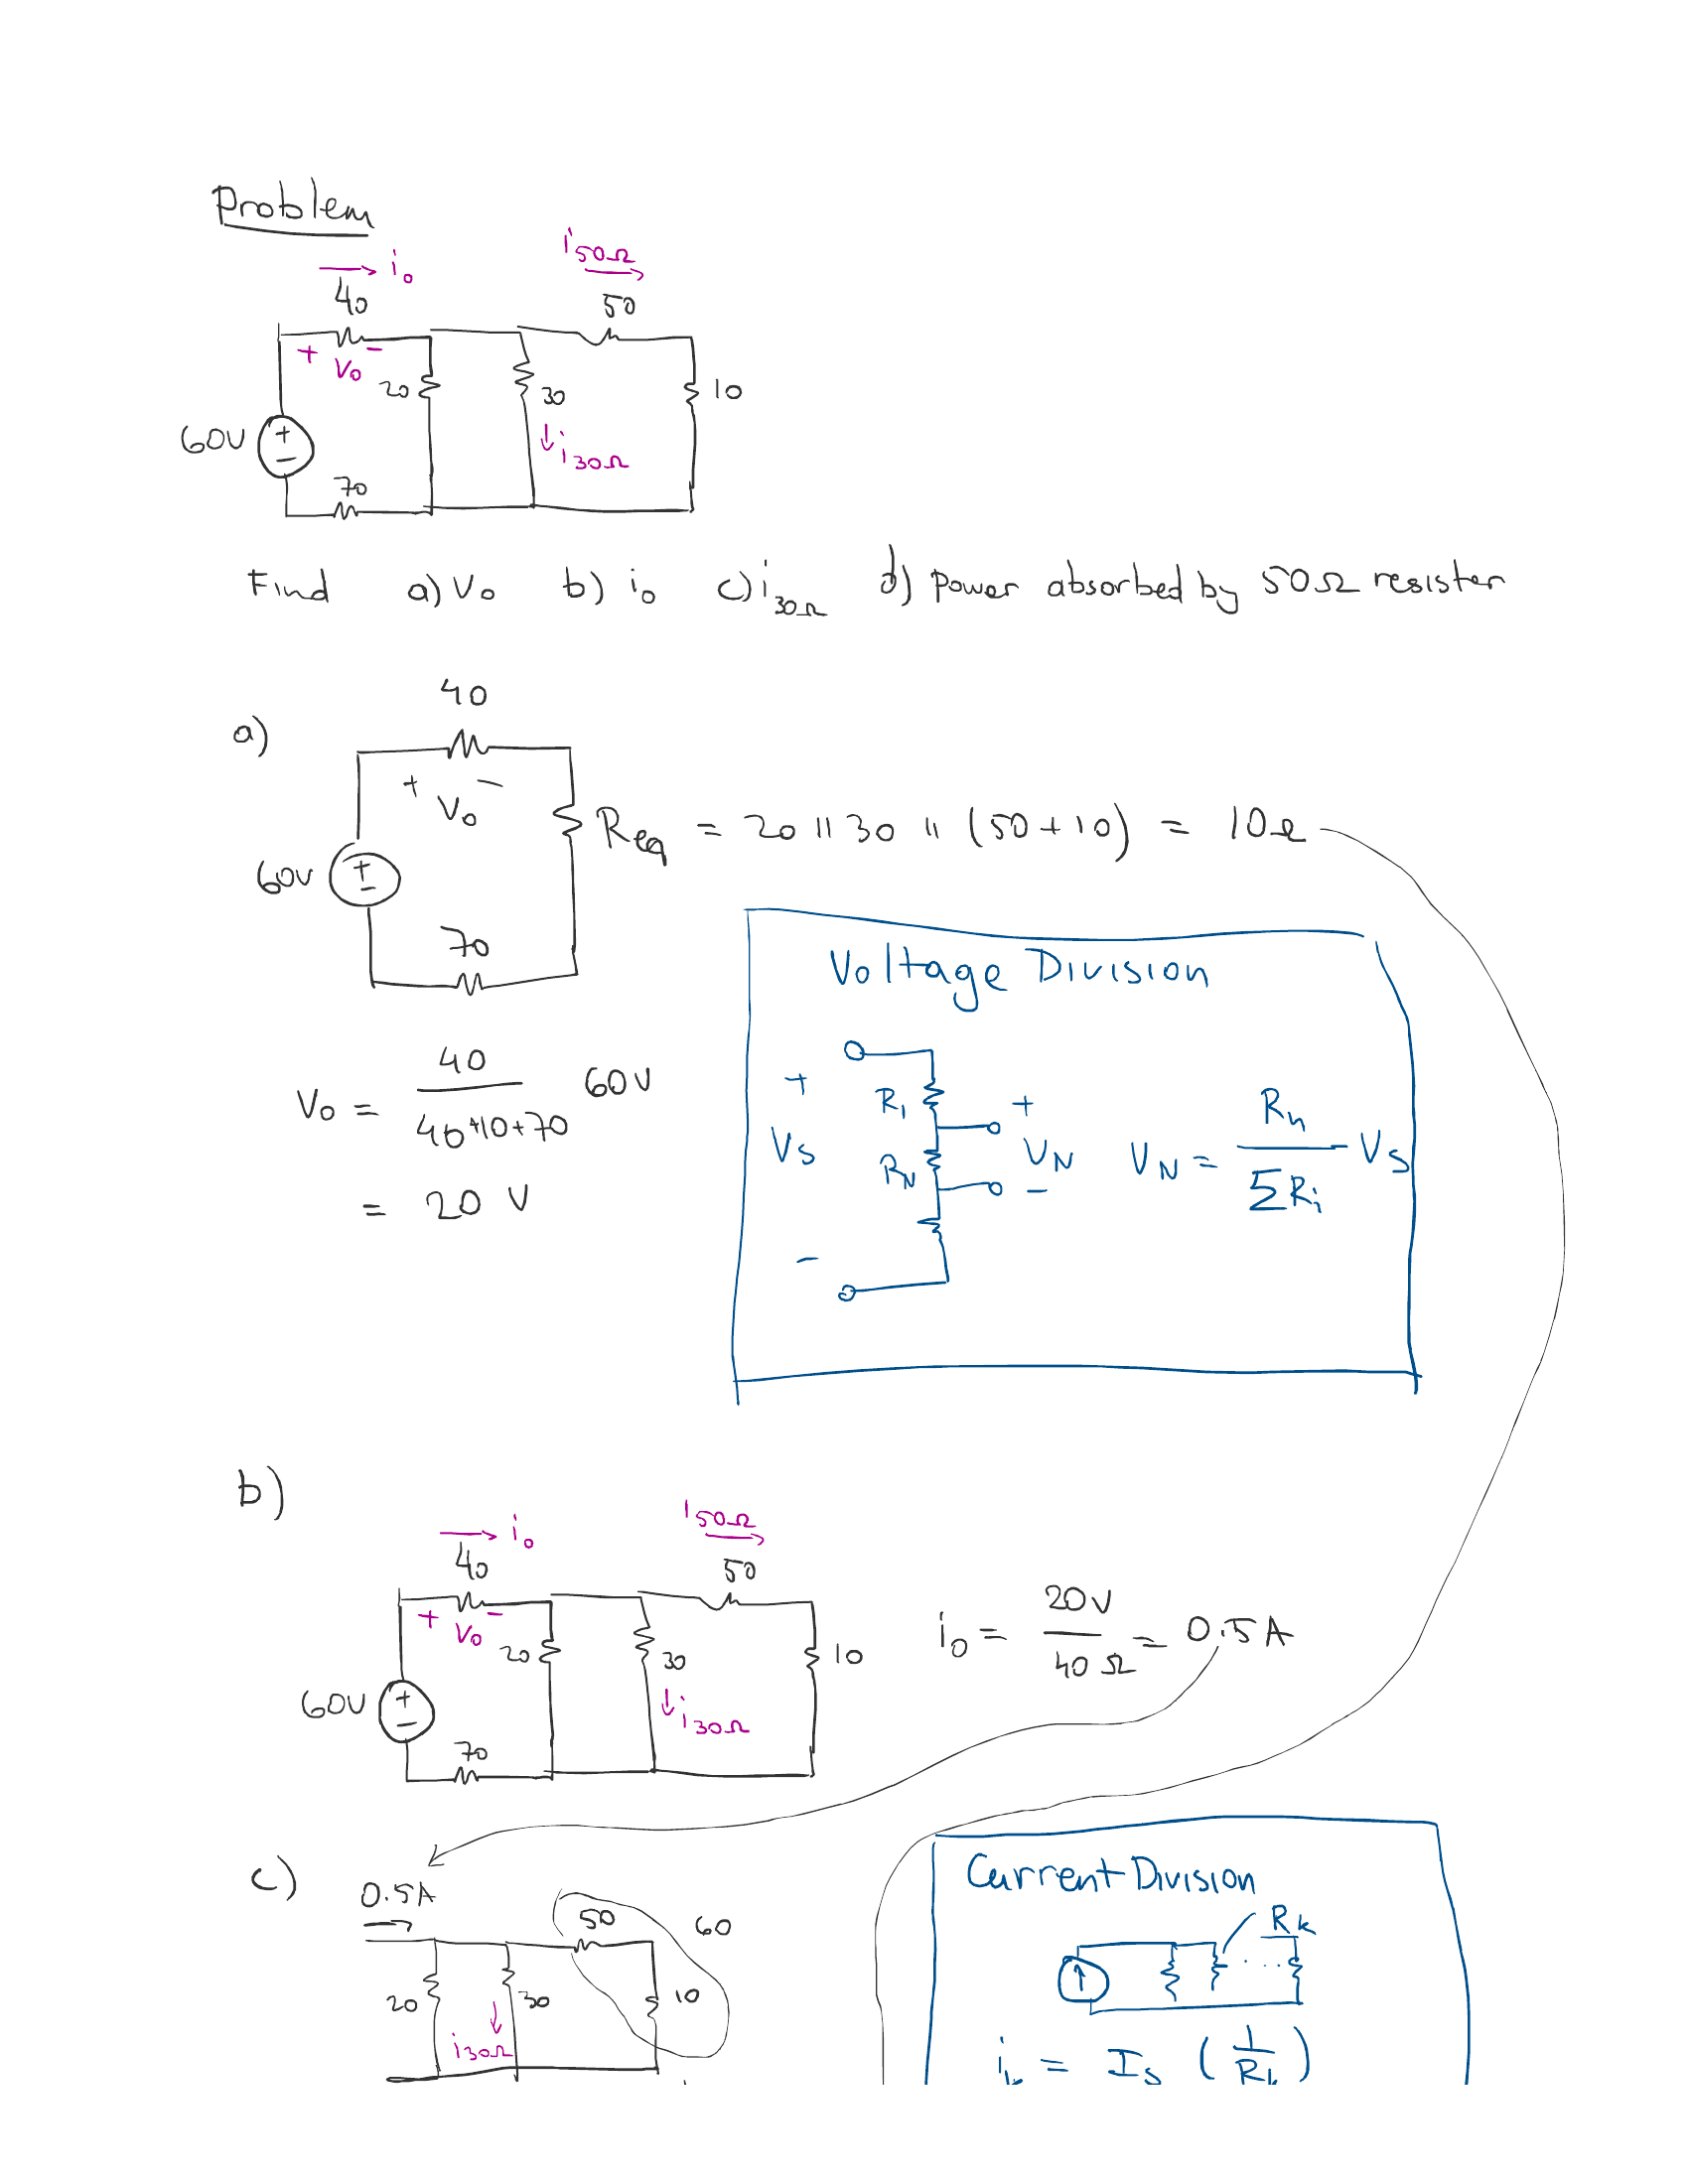 Problem
i₀ i50Ω
40 50
+ V₀ −
20 30 10
60V + −
i30Ω
70
Find a) V₀ b) i₀ c) i30Ω d) power absorbed by 50Ω resister
a)
40
+ V₀ −
Req = 20 || 30 || (50+10) = 10Ω
60V + −
70
V₀ = 40 / (40+10+70) 60V
= 20 V
Voltage Division
+ Vs −
R₁
RN
+ VN −
VN = Rn / ΣRi Vs
b)
i₀ i50Ω
40 50
+ V₀ −
20 30 10
60V + −
i30Ω
70
i₀ = 20V / 40Ω = 0.5A
c)
0.5A
50 60
20 30 10
i30Ω
Current Division
Rk
...
= Is (1/Rk)